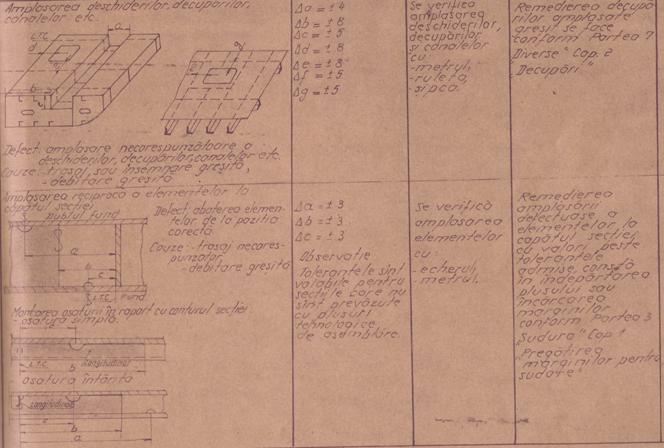 Amplasarea deschiderilor, decupărilor,
canalelor etc.
a
L.T.C.
d
b
g
Defect: amplasare necorespunzătoare a
deschiderilor, decupărilor, canalelor etc.
Cauze: -trasaj, sau însemnare greșită,
-debitare greșită
Δa = ± 4
Δb = ± 8
Δc = ± 5
Δd = ± 8
Δe = ± 8
Δf = ± 5
Δg = ± 5
Se verifică
amplasarea
deschiderilor,
decupărilor
și canalelor
cu
-metrul,
-ruleta,
-șipca.
Remedierea decupă-
rilor amplasate
greșit se face
conform Partea 7
Diverse" Cap. 2
"Decupări"
Amplasarea reciprocă a elementelor la
capătul secției
dublul fund
a
b
c
L.T.C. fund
Defect: abaterea elemen-
telor de la poziția
corectă.
Cauze: -trasaj necores-
punzător,
-debitare greșită
Montarea osaturii în raport cu conturul secției
- osatura simplă.
L.T.C. longitudinali
b
a
osatura întărită
longitudinali
c
b
a
Δa = ± 3
Δb = ± 3
Δc = ± 3
Observație
Toleranțele sînt
valabile pentru
secțiile care nu
sînt prevăzute
cu plusuri
tehnologice
de asamblare.
Se verifică
amplasarea
elementelor
cu:
-echerul,
-metrul.
Remedierea
amplasării
defectuase a
elementelor la
capătul secției,
cu valori peste
toleranțele
admise, constă
în îndepărtarea
plusului sau
încărcarea
marginilor
conform Partea 3
"Sudura" Cap. 1
"Pregătirea
marginilor pentru
sudare"